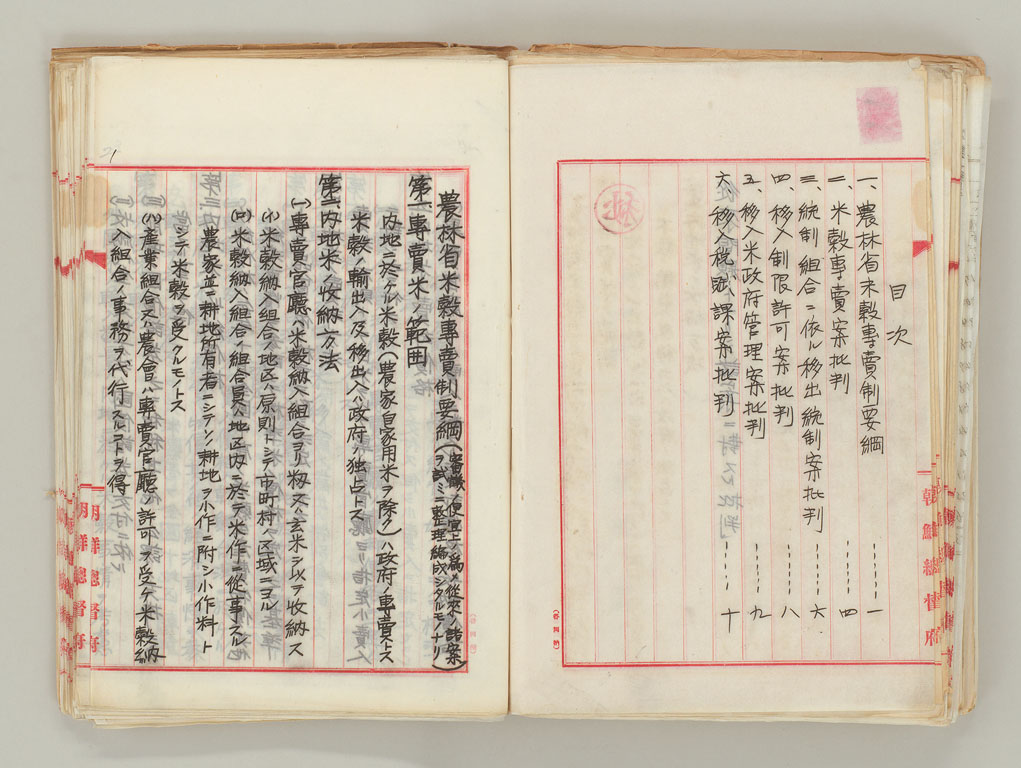 目次
一、農林省米穀專賣制要綱 ------ 一
二、米穀專賣案批判 ------ 四
三、統制組合ニ依ル移出統制案批判 ------ 六
四、移入制限許可案批判 ------ 八
五、移入米政府管理案批判 ------ 九
六、移入税賦課案批判 ------ 十
朝鮮總督府
農林省米穀專賣制要綱(嘗識ノ便宜上ノ爲メ從來ノ諸案ヲ試ミニ整理編成シタルモノナリ)
第一、專賣米ノ範囲
内地ニ於ケル米穀(農家自家用米ヲ除ク)ハ政府ノ專賣トス
米穀ノ輸出入及移出入ハ政府ノ独占トス
第二、内地米ノ收納方法
(一)專賣官廳ハ米穀納入組合ヨリ籾又ハ玄米ヲ以テ收納ス
(イ)米穀納入組合ノ地区ハ原則トシテ市町村ノ区域ニヨル
(ロ)米穀納入組合ノ組合員ハ地区内ニ於テ米作ニ從事スル
農家並ニ耕地所有者ニシテソノ耕地ヲ小作ニ附シ小作料ト
シテ米穀ヲ受クルモノトス
(ハ)産業組合又ハ農會ハ專賣官廳ノ許可ヲ受ケ米穀納
入組合ノ事務ヲ代行スルコトヲ得
朝鮮總督府